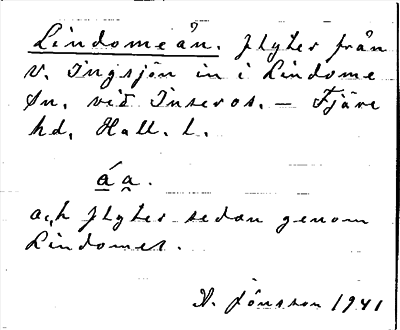 Lindomeån. flyter från
V. Ingsjön in i Lindome
sn. vid Inseros. – Fjäre
hd. Hall. l.
á a.
och flyter sedan genom
Lindomes.
A. Jönsson 1941